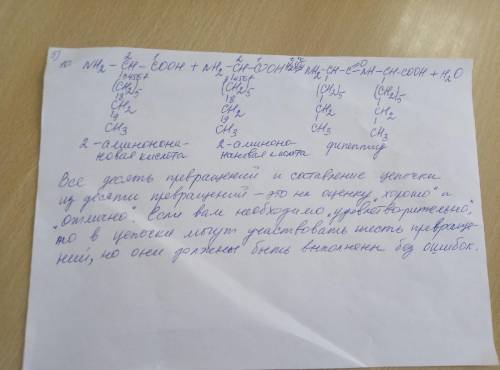 10. NH2 – CH – COOH + NH2 – CH – COOH NH2–CH–C=O NH–CH–COOH + H2O
(CH2)5 (CH2)5 (CH2)5 (CH2)5
CH2 CH2 CH2 CH2
CH3 CH3 CH3 CH3
2-аминонона- 2-аминоно- дипептид
новая кислота нановая кислота
Все десять превращений и составление цепочки
из десяти превращений – это на оценку „хорошо" и
„отлично". Если вам необходимо „удовлетворительно",
то в цепочке могут участвовать шесть превраще-
ний, но они должны быть выполнены без ошибок.